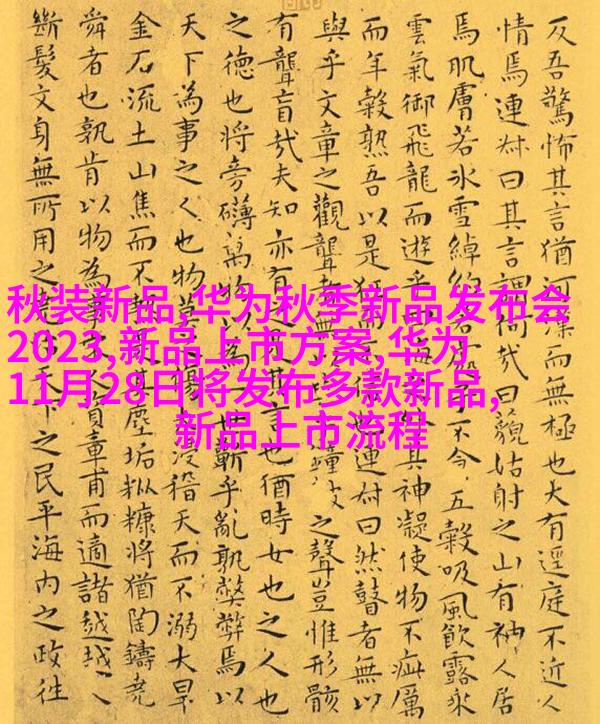 秋装新品,华为秋季新品发布会
2023,新品上市方案,华为
11月28日将发布多款新品,
新品上市流程
反吾驚怖其言猶河漢而無極也大有逕庭不近人
情焉連叔曰其言謂何哉曰藐姑射之山有神人居
焉肌膚若冰雪綽約若不五穀吸風飲露乘
雲氣御飛龍而遊乎其神凝使物不疵厲
而年穀熟吾以是連叔曰然瞽者無以
與乎文章之觀聾者無之聲豈惟形骸
有聾盲哉夫知亦有其言也猶時女也之人也
之德也將旁礴萬物以為一世蘄乎亂孰弊弊焉以
天下為事之人也物莫浸稽天而不溺大旱
金石流土山焦而不熱其塵垢粃糠將猶陶鑄堯
舜者也孰肯以物為事人資章甫而適諸越越
斷髮文身無所用之天下之民平海內之政往